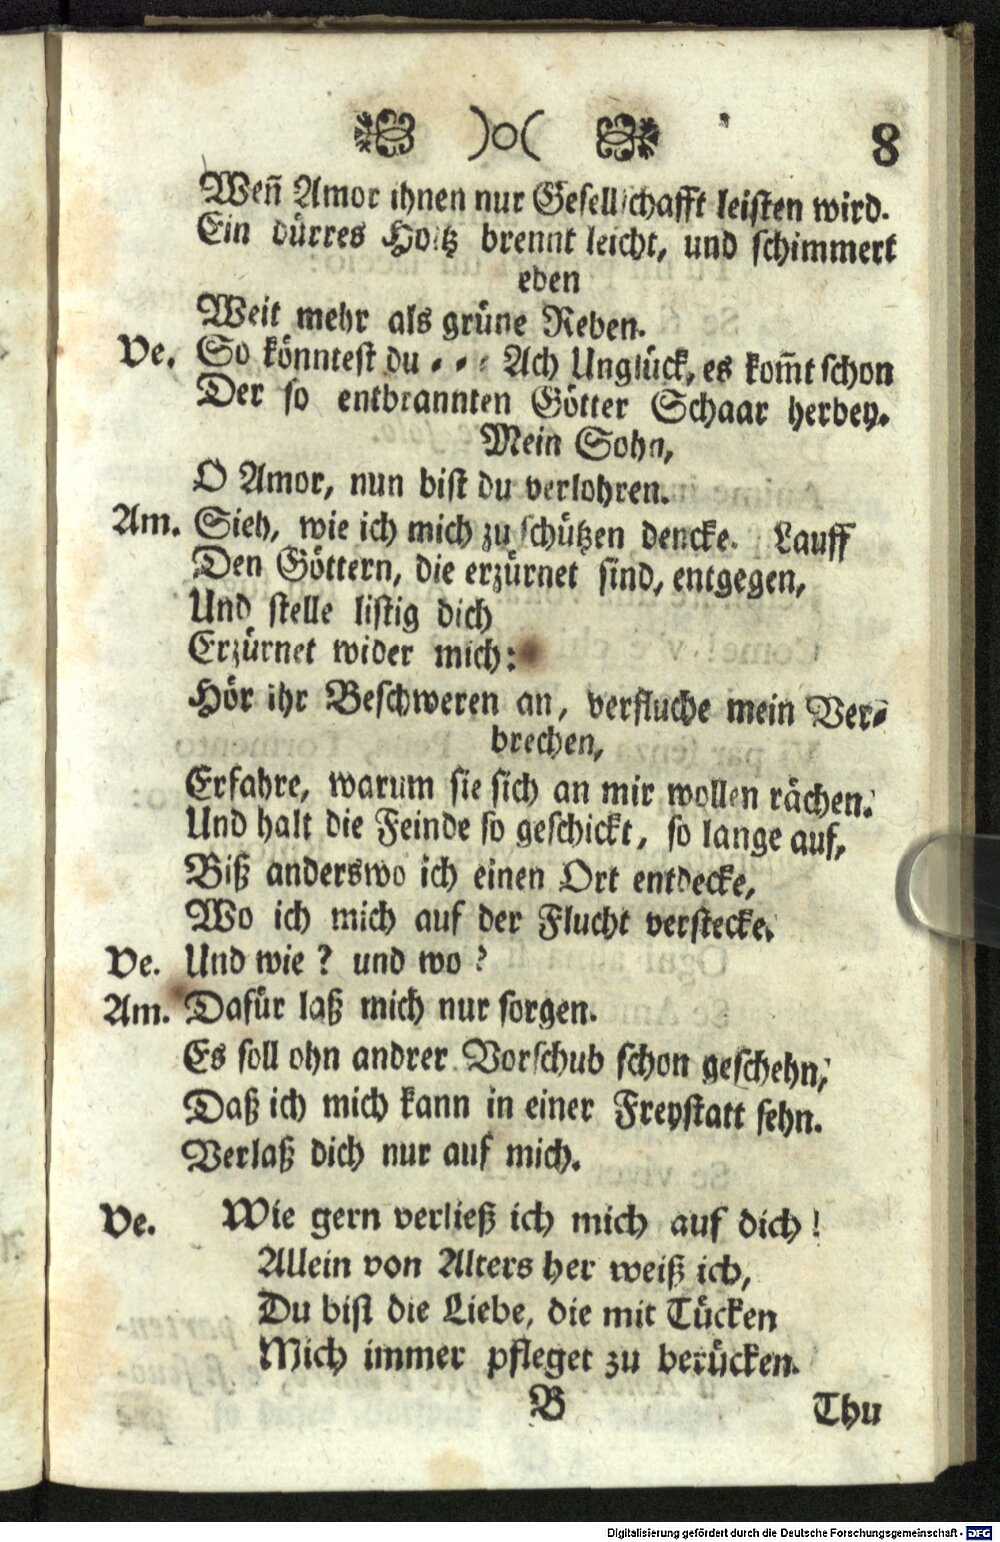 )o( 8
Weñ Amor ihnen nur Gesellschafft leisten wird.
Ein dürres Holtz brennt leicht, und schimmert
eben
Weit mehr als grüne Reben.
Ve. So könntest du - - - Ach Unglück, es kom̃t schon
Der so entbrannten Götter Schaar herbey.
Mein Sohn,
O Amor, nun bist du verlohren.
Am. Sieh, wie ich mich zu schützen dencke. Lauff
Den Göttern, die erzürnet sind, entgegen,
Und stelle listig dich
Erzürnet wider mich:
Hör ihr Beschweren an, verfluche mein Ver-
brechen,
Erfahre, warum sie sich an mir wollen rächen.
Und halt die Feinde so geschickt, so lange auf,
Biß anderswo ich einen Ort entdecke,
Wo ich mich auf der Flucht verstecke.
Ve. Und wie? und wo?
Am. Dafür laß mich nur sorgen.
Es soll ohn andrer Vorschub schon geschehn,
Daß ich mich kann in einer Freystatt sehn.
Verlaß dich nur auf mich.
Ve. Wie gern verließ ich mich auf dich!
Allein von Alters her weiß ich,
Du bist die Liebe, die mit Tücken
Mich immer pfleget zu berücken.
B Thu
Digitalisierung gefördert durch die Deutsche Forschungsgemeinschaft - DFG